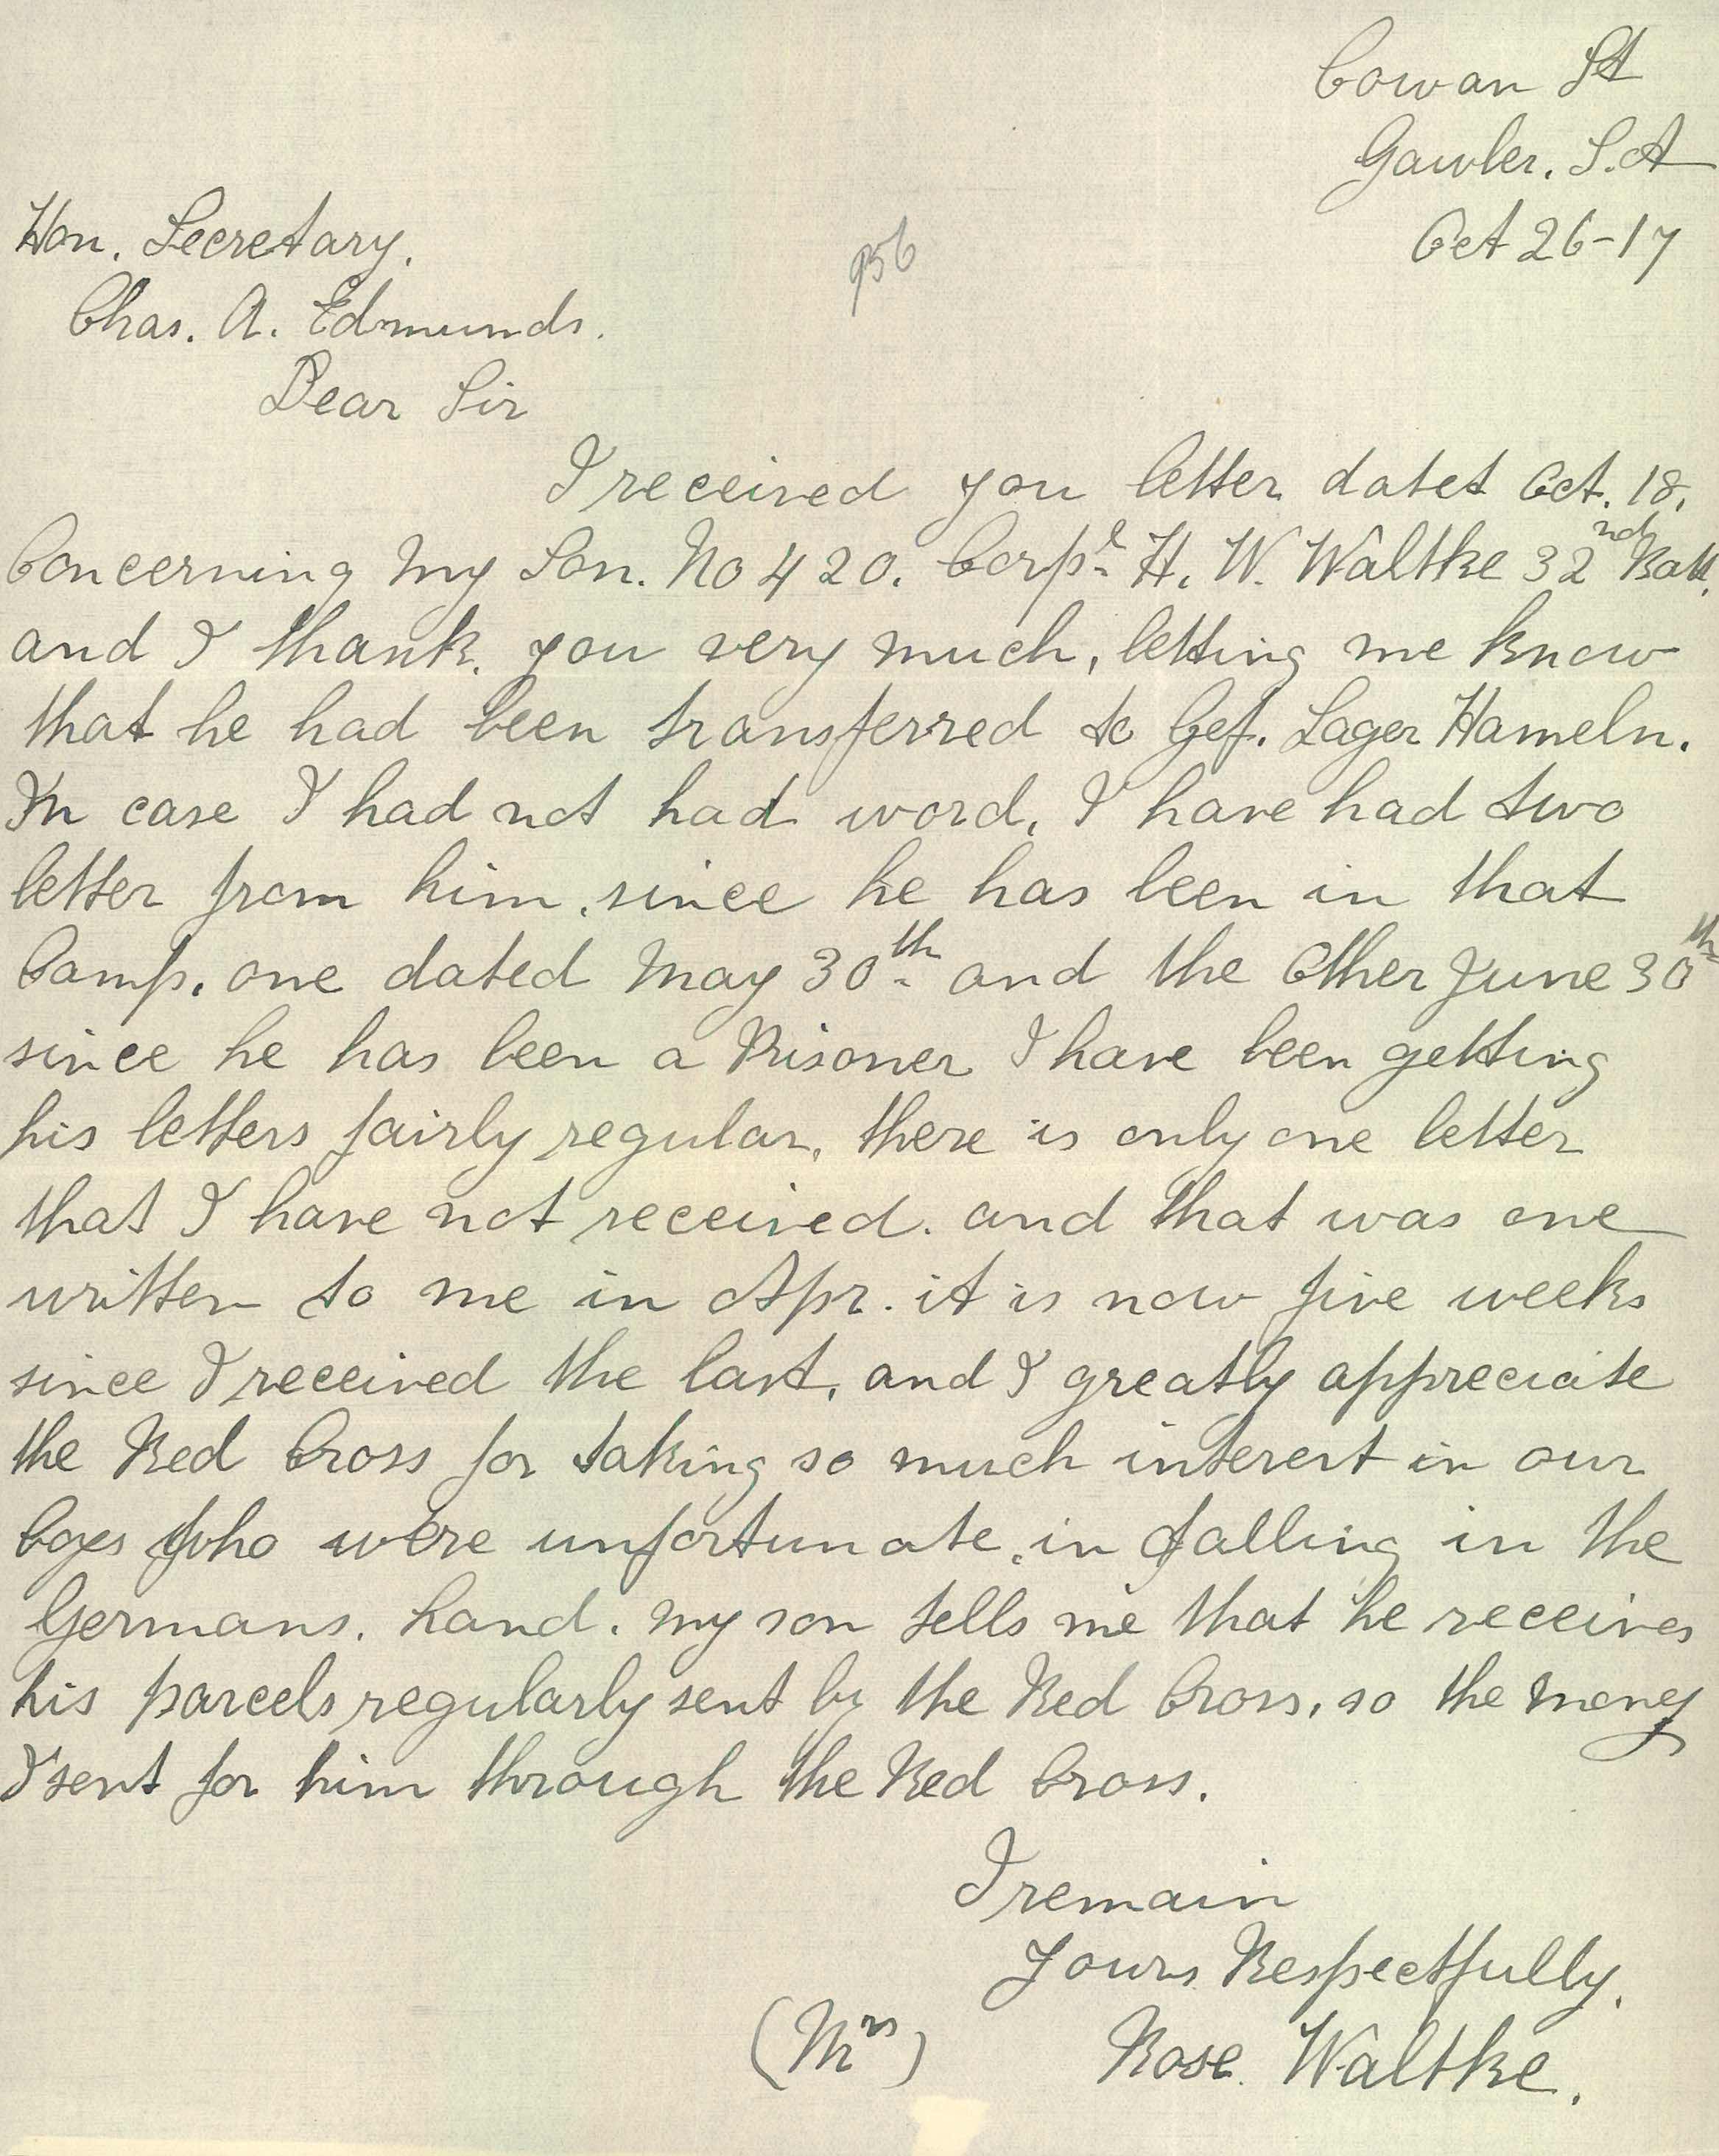 Cowan St
Gawler. S.A
Oct 26-17
Hon. Secretary.
956
Chas. A. Edmunds.
Dear Sir
I received you letter datet Oct. 18.
Concerning my Son. No 420. Corpl. H. W. Waltke 32nd Batt.
and I thank. you very much, letting me know
that he had been transferred to Gef. Lager Hameln.
In case I had not had word. I have had two
letter from him, since he has been in that
Camp. one dated May 30th and the Other June 30th
since he has been a Prisoner I have been getting
his letters fairly regular, there is only one letter
that I have not received. and that was one
written to me in Apr. it is now five weeks
since I received the last, and I greatly appreciate
the Red Cross for taking so much interest in our
boyes who were unfortunate, in falling in the
Germans. hand. my son tells me that he receives
his parcels regularly sent by the Red Cross, so the money
I sent for him through the Red Cross.
I remain
Yours Respectfully.
(Mrs) Rose. Waltke.